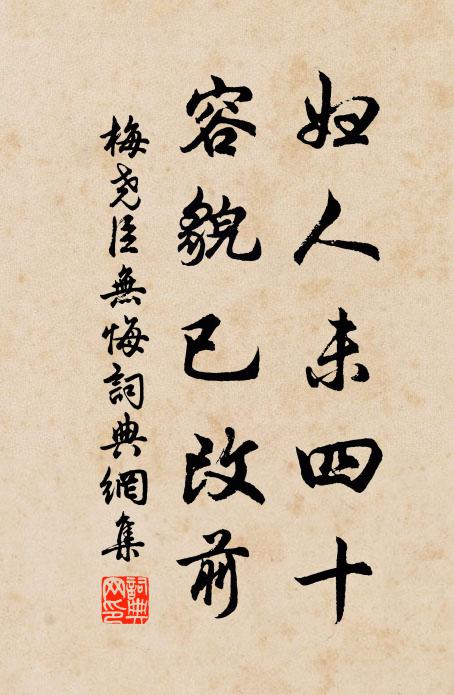 妇人未四十
容貌已改前
梅尧臣無悔詞典網集
詞典網印